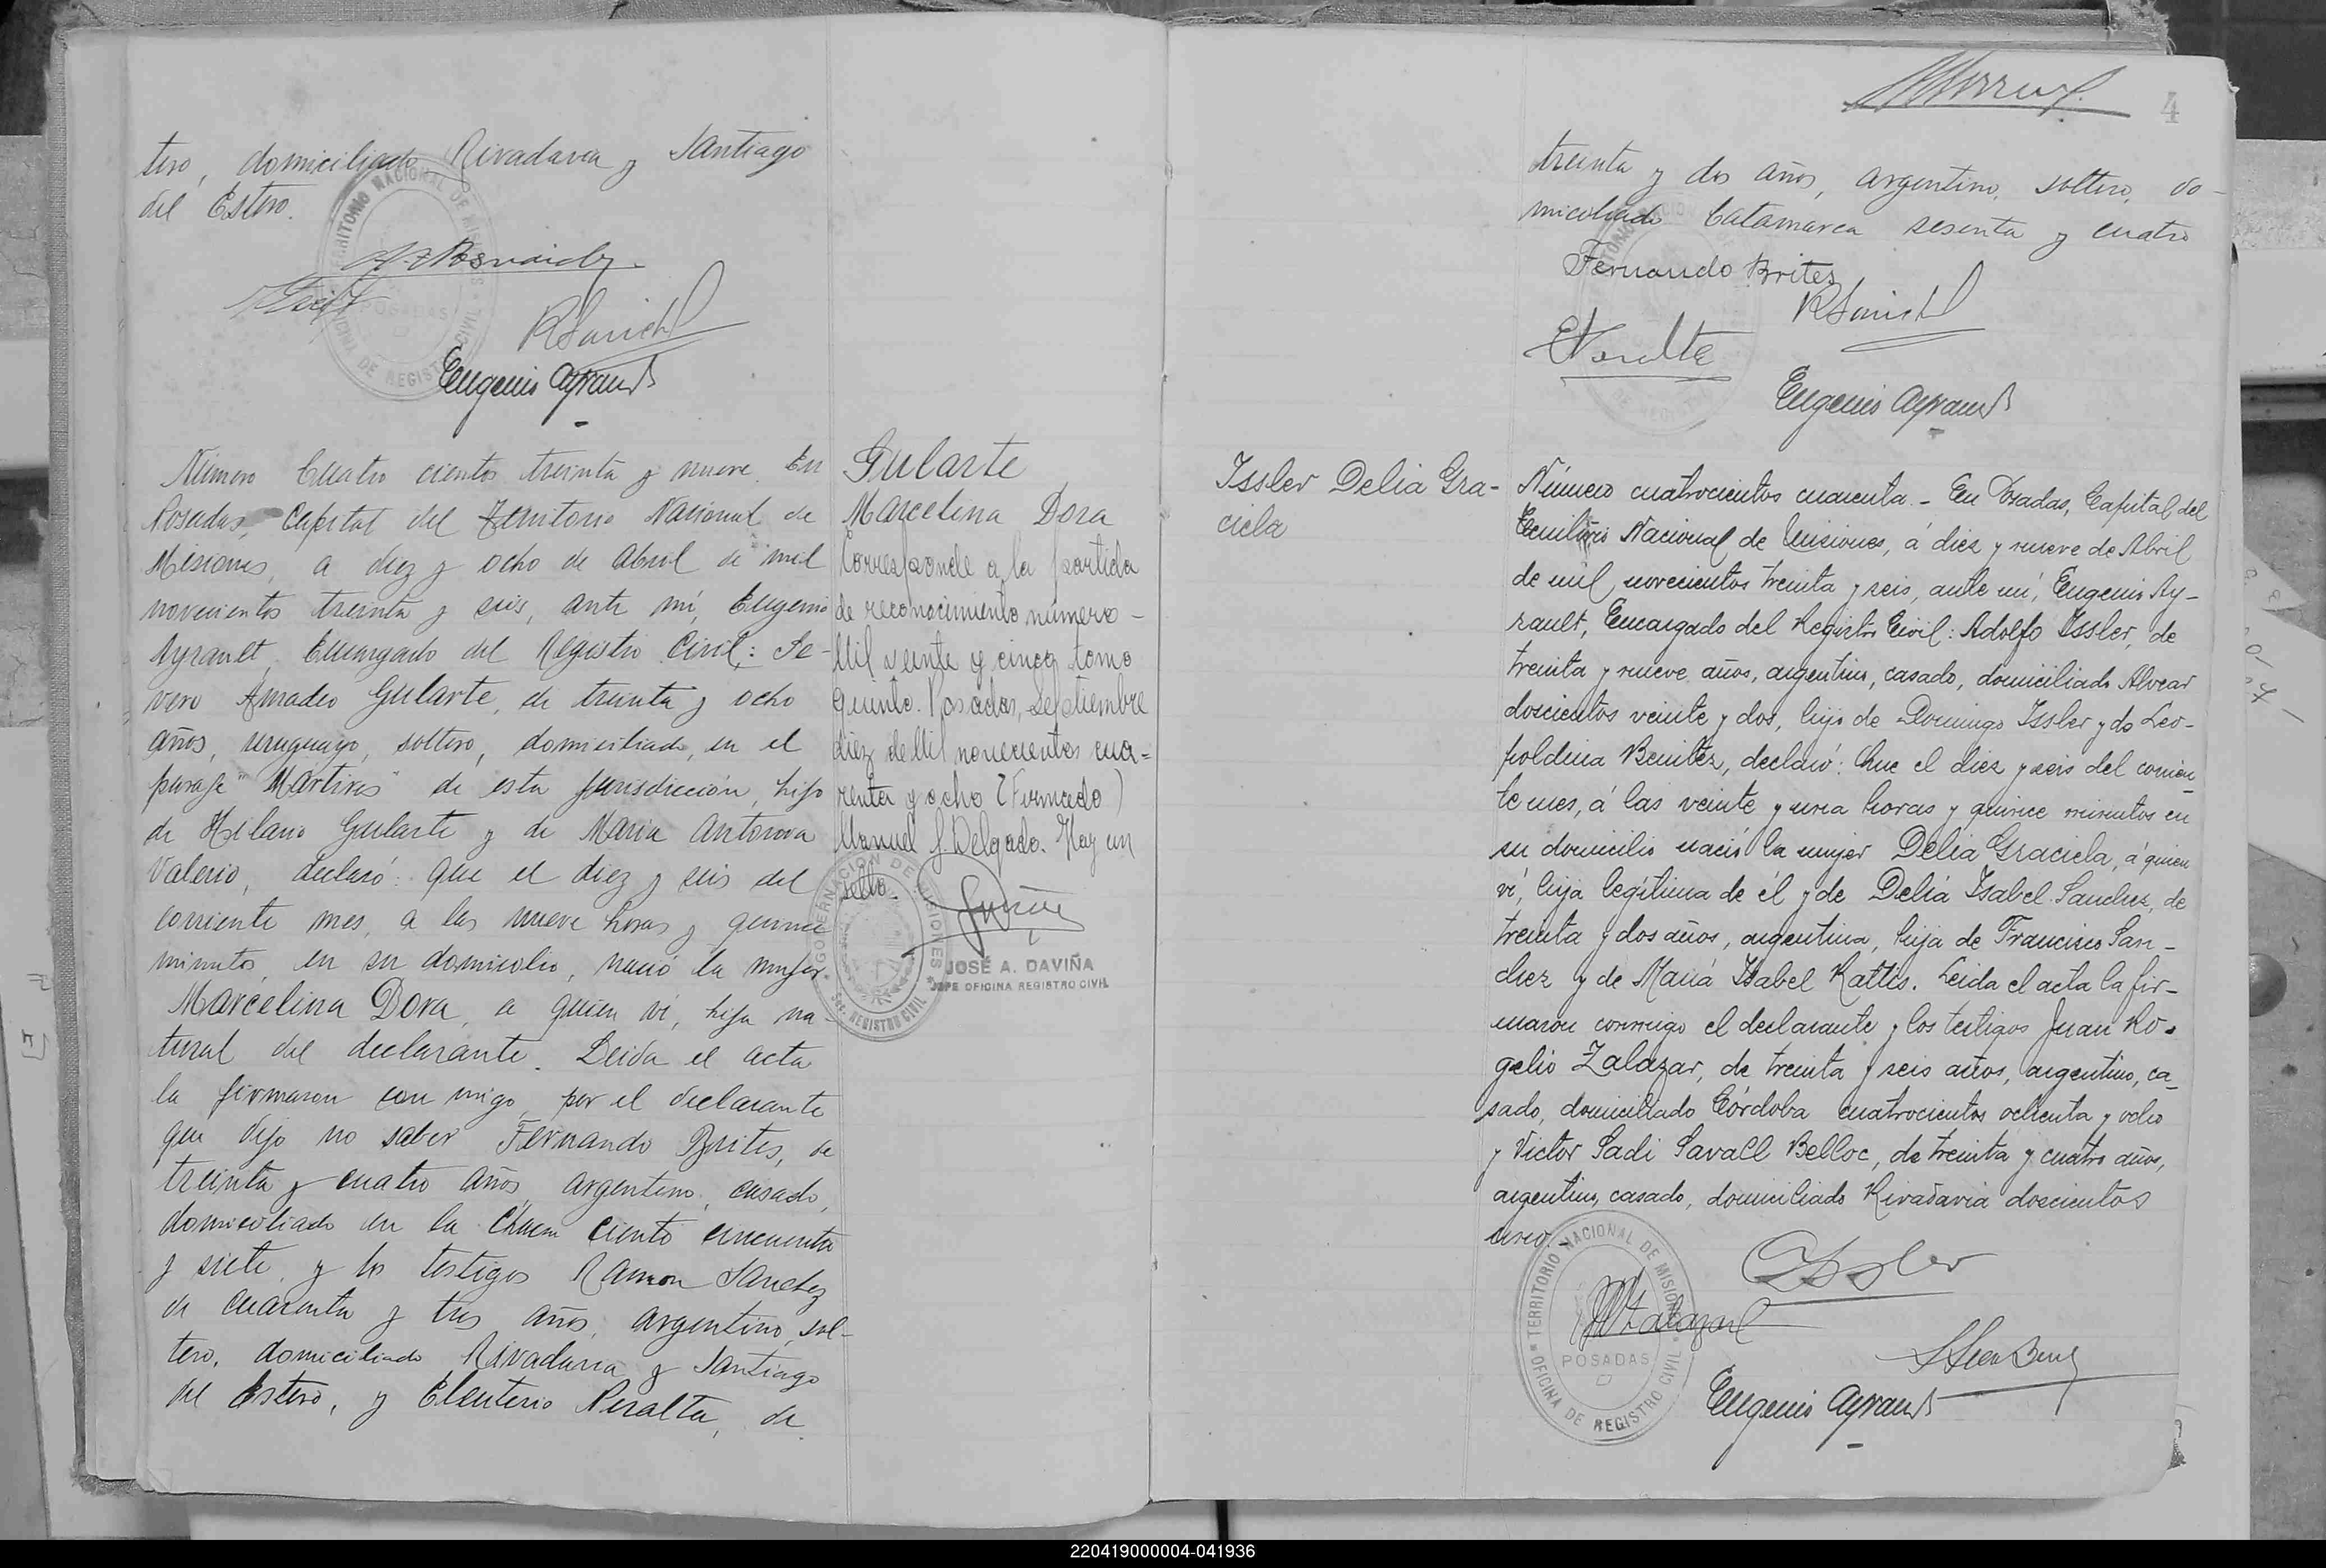 tero, domiciliado Rivadavia y Santiago
del Estero.
TERRITORIO NACIONAL DE MISIONES
OFICINA DE REGISTRO CIVIL
POSADAS
Eugenio Ayrault
Número Cuatro cientos treinta y nueve. En
Posadas, Capital del Territorio Nacional de
Misiones, a diez y ocho de Abril de mil
novecientos treinta y seis, ante mí, Eugenio
Ayrault Encargado del Registro Civil: Se-
vero Amadeo Gularte, de treinta y ocho
años, uruguayo, soltero, domiciliado, en el
paraje "Mártires" de esta jurisdicción, hijo
de Hilario Gularte y de Maria Antonia
Valerio, declaró: que el diez y seis del
corriente mes, a las nueve horas y quince
minutos, en su domicilio, nació la mujer
Marcelina Dora, a quien ví, hija na-
tural del declarante. Leida el acta
la firmaron con migo, por el declarante
que dijo no saber Fernando Brites, de
treinta y cuatro años, argentino, casado,
domiciliado en la Chacra ciento cincuenta
y siete, y los testigos Ramon Sanchez
de cuarenta y tres años, argentino, sol-
tero, domiciliado Rivadavia y Santiago
del Estero, y Eleuterio Peralta, de
Gularte
Marcelina Dora
Corresponde a la partida
de reconocimiento número-
Mil veinte y cinco tomo
quinto. Posadas, Septiembre
diez de Mil novecientos cua=
renta y ocho (Firmado)
Manuel J. Delgado. Hay un
sello.
GOBERNACION DE MISIONES
REGISTRO CIVIL
JOSÉ A. DAVIÑA
JEFE OFICINA REGISTRO CIVIL
4
treinta y dos años, argentino, soltero, do-
miciliado Catamarca sesenta y cuatro
Fernando Brites
Eugenio Ayrault
Issler Delia Gra-
ciela
Número cuatrocientos cuarenta.- En Posadas, Capital del
Territorio Nacional de Misiones, á diez y nueve de Abril
de mil novecientos treinta y seis, ante mí, Eugenio Ay-
rault, Encargado del Registro Civil: Adolfo Issler, de
treinta y nueve años, argentino, casado, domiciliado Alvear
doscientos veinte y dos, hijo de Domingo Issler y de Leo-
poldina Benitez, declaró: Que el diez y seis del corrien-
te mes, á las veinte y una horas y quince minutos en
su domicilio nació la mujer Delia Graciela, á quien
ví, hija legítima de él y de Delia Isabel Sanchez, de
treinta y dos años, argentina, hija de Francisco San-
chez y de María Isabel Rattis. Leida el acta la fir-
maron conmigo el declarante y los testigos Juan Ro-
gelio Zalazar, de treinta y seis años, argentino, ca-
sado, domiciliado Córdoba cuatrocientos ochenta y ocho
y Victor Sadi Savall Belloc, de treinta y cuatro años,
argentino, casado, domiciliado Rivadavia doscientos
cinco.-
Issler
TERRITORIO NACIONAL DE MISIONES
POSADAS
OFICINA DE REGISTRO CIVIL
Eugenio Ayrault
220419000004-041936